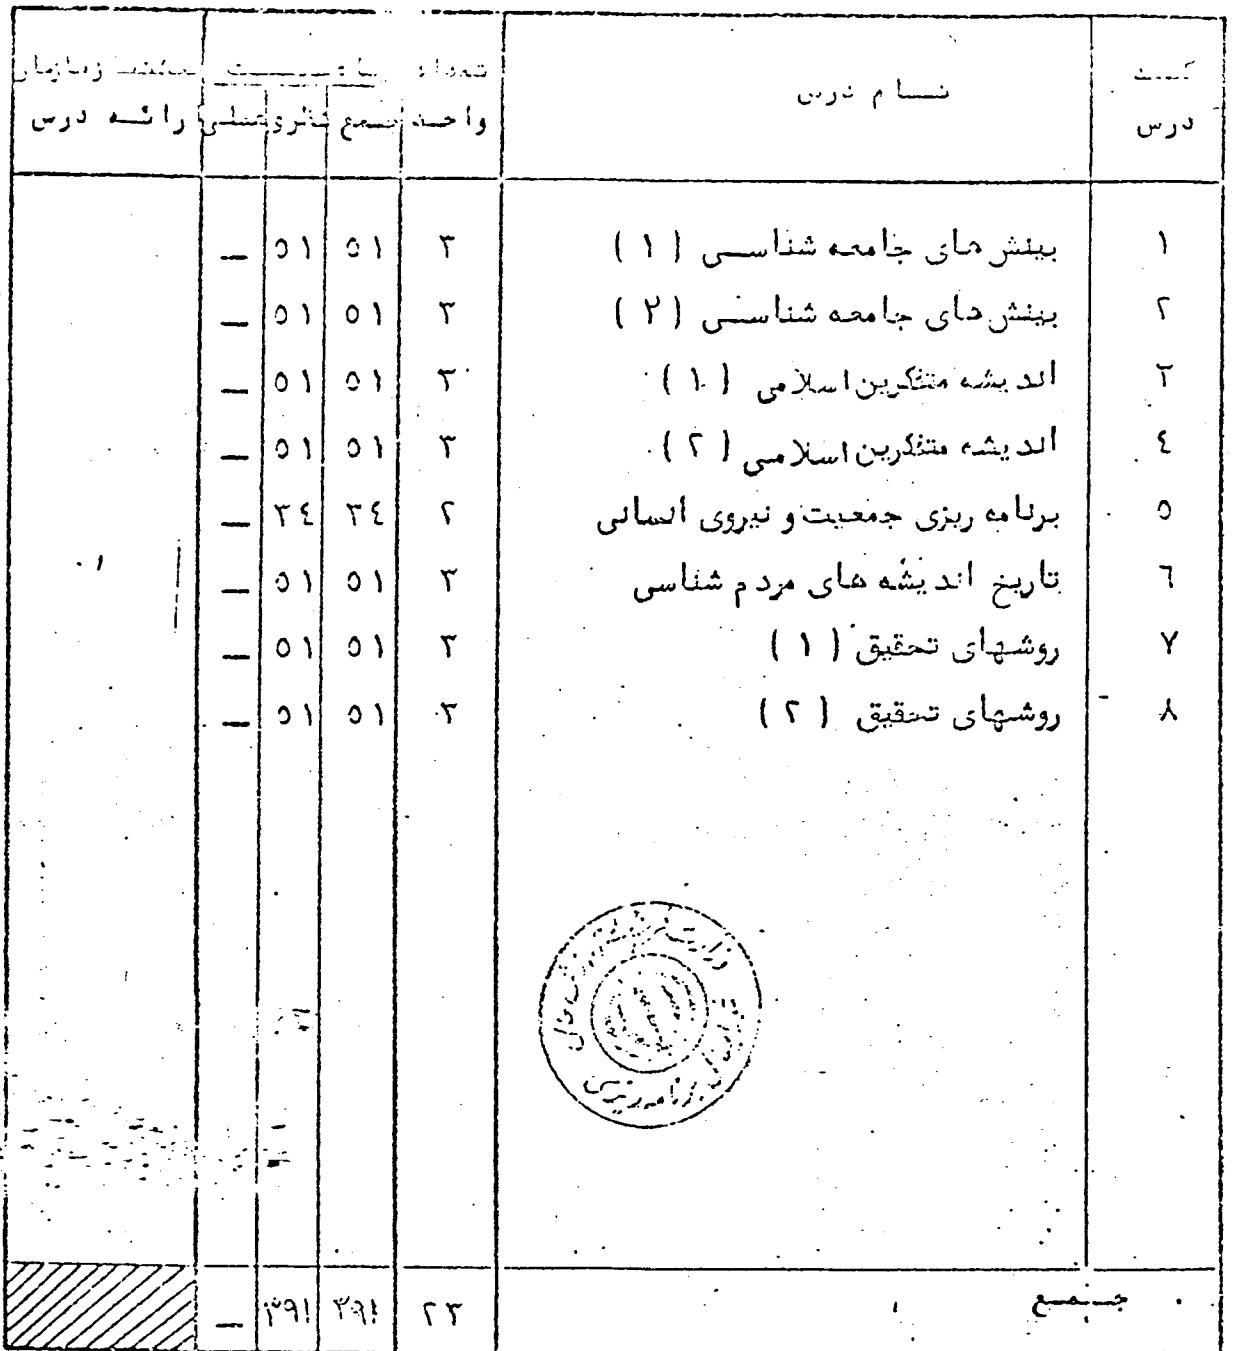 کد درس | نام درس | تعداد واحد | ساعت جمع نظری عملی | زمان ارائه درس
۱ بینش های جامعه شناسی ( ۱ ) ۳ ۵۱ ۵۱ —
۲ بینش های جامعه شناسی ( ۲ ) ۳ ۵۱ ۵۱ —
۳ اندیشه متفکرین اسلامی ( ۱ ) ۳ ۵۱ ۵۱ —
۴ اندیشه متفکرین اسلامی ( ۲ ) ۳ ۵۱ ۵۱ —
۵ برنامه ریزی جمعیت و نیروی انسانی ۲ ۳۴ ۳۴ —
۶ تاریخ اندیشه های مردم شناسی ۳ ۵۱ ۵۱ —
۷ روشهای تحقیق ( ۱ ) ۳ ۵۱ ۵۱ —
۸ روشهای تحقیق ( ۲ ) ۳ ۵۱ ۵۱ —
جمع ۲۳ ۳۹۱ ۳۹۱ —